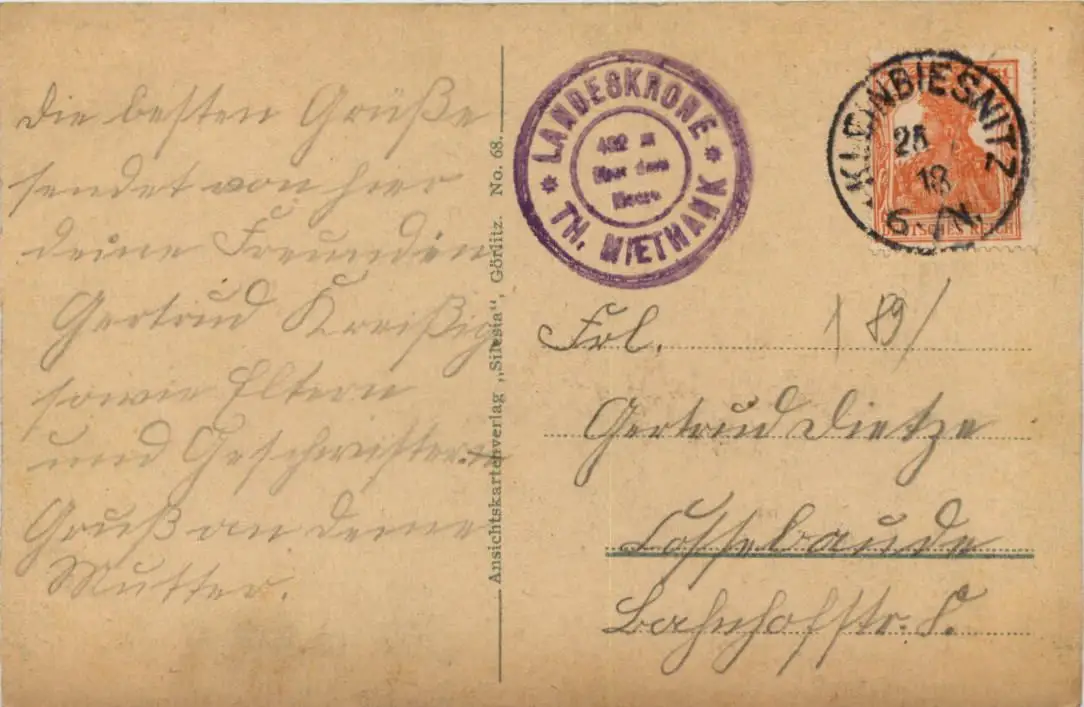 Die besten Grüße
sendet von hier
deine Freundin
Gertrud Kreißig
sowie Eltern
und Geschwister.
Gruß an deine
Mutter.
Ansichtskartenverlag „Silesia“, Görlitz. No. 68.
* LANDESKRONE *
TH. MIETHANK
Meere
KLEINBIESNITZ
25
18
DEUTSCHES REICH
Frl.
89
Gertrud Dietze
Cossebaude
Bahnhofstr.